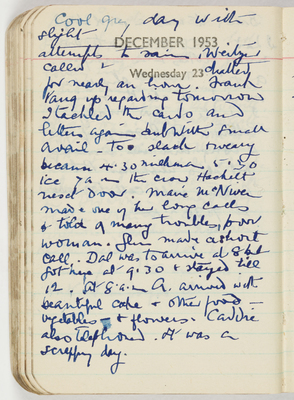 Cool grey day with
slight
DECEMBER 1953
attempts to rain. called & chatted
Wednesday 23
for nearly an hour. Frank
rang up regarding tomorrow
I tackled the cards and
letters again but with small
avail - too slack & weary
because 4.30 milkman, 5.30
ice man the crow Hackett
next door. Marie McNiven
made one of her long calls
& told of many troubles, poor
woman. Glen made a short
call. Dal was to arrive at 8 but
got here at 9.30 & stayed till
12. At 8 a.m A. arrived with
beautiful cake & other food -
vegetables & flowers. Caddie
also telephoned. It was a
scrappy day.